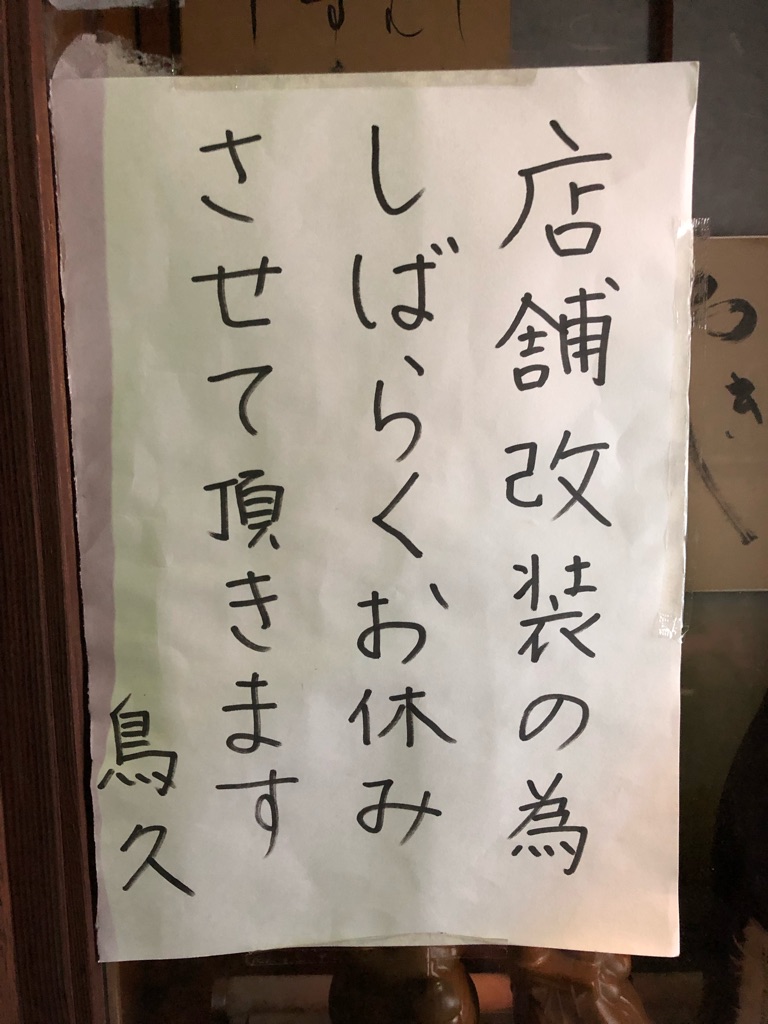 店舗改装の為
しばらくお休み
させて頂きます
鳥久